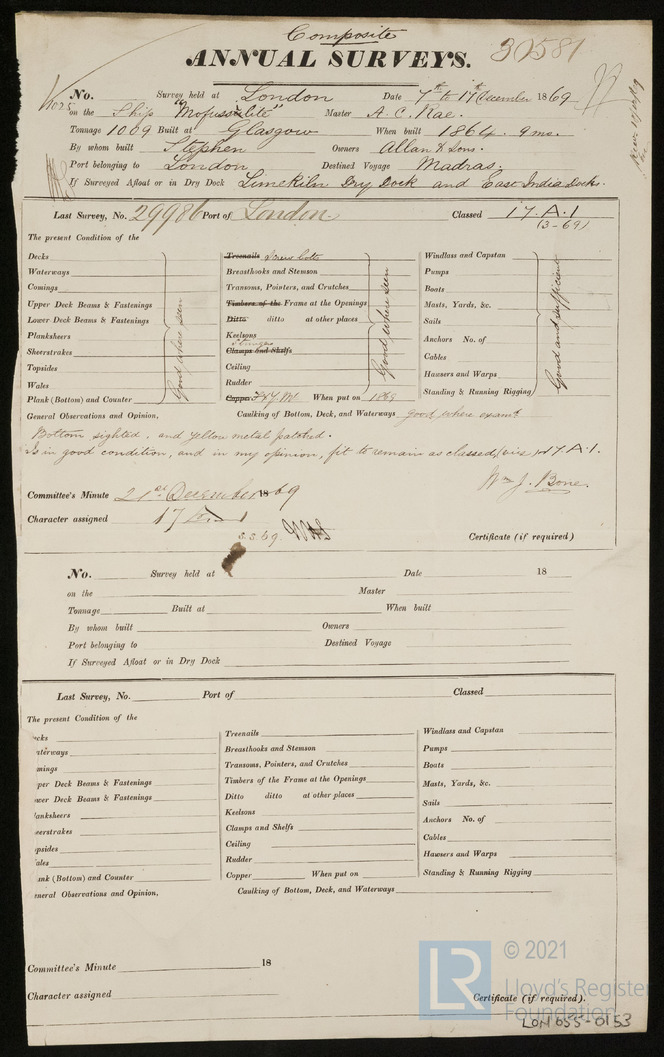 Composite
ANNUAL SURVEYS. 30581
No. Survey held at London Date 7th to 17th December 1869
on the Ship "Mofussilite" Master A. C. Rae.
Tonnage 1009 Built at Glasgow When built 1864. 9 mo.
By whom built Stephen Owners Allan & Sons.
Port belonging to London Destined Voyage Madras.
If Surveyed Afloat or in Dry Dock Limekiln Dry Dock and East India Docks.
Last Survey, No. 29986 Port of London. Classed 17. A. 1
(3-69)
The present Condition of the
Decks
Waterways
Comings
Upper Deck Beams & Fastenings
Lower Deck Beams & Fastenings
Planksheers
Sheerstrakes
Topsides
Wales
Plank (Bottom) and Counter
Good where seen
Treenails Screw bolts
Breasthooks and Stemson
Transoms, Pointers, and Crutches
Timbers of the Frame at the Openings
Ditto ditto at other places
Keelsons
Stringers
Clamps and Shelfs
Ceiling
Rudder
Copper F & Y. M. When put on 1869
Good where seen
Windlass and Capstan
Pumps
Boats
Masts, Yards, &c.
Sails
Anchors No. of
Cables
Hawsers and Warps
Standing & Running Rigging
Good and sufficient
General Observations and Opinion. Caulking of Bottom, Deck, and Waterways good where examd
Bottom sighted, and yellow metal patched.
Is in good condition, and in my opinion, fit to remain as classed, viz 17. A. 1.
Wm J. Bone.
Committee's Minute 21st December 1869
Character assigned 17 A 1
s.s. 69.
Certificate (if required)
No. Survey held at Date 18
on the Master
Tonnage Built at When built
By whom built Owners
Port belonging to Destined Voyage
If Surveyed Afloat or in Dry Dock
Last Survey, No. Port of Classed
The present Condition of the
ecks
aterways
mings
per Deck Beams & Fastenings
wer Deck Beams & Fastenings
lanksheers
eerstrakes
psides
ales
ank (Bottom) and Counter
Treenails
Breasthooks and Stemson
Transoms, Pointers, and Crutches
Timbers of the Frame at the Openings
Ditto ditto at other places
Keelsons
Clamps and Shelfs
Ceiling
Rudder
Copper When put on
Windlass and Capstan
Pumps
Boats
Masts, Yards, &c.
Sails
Anchors No. of
Cables
Hawsers and Warps
Standing & Running Rigging
eneral Observations and Opinion. Caulking of Bottom, Deck, and Waterways
Committee's Minute 18
Character assigned
Certificate (if required).
LR © 2021
Lloyd's Register
Foundation
LON 055-0153